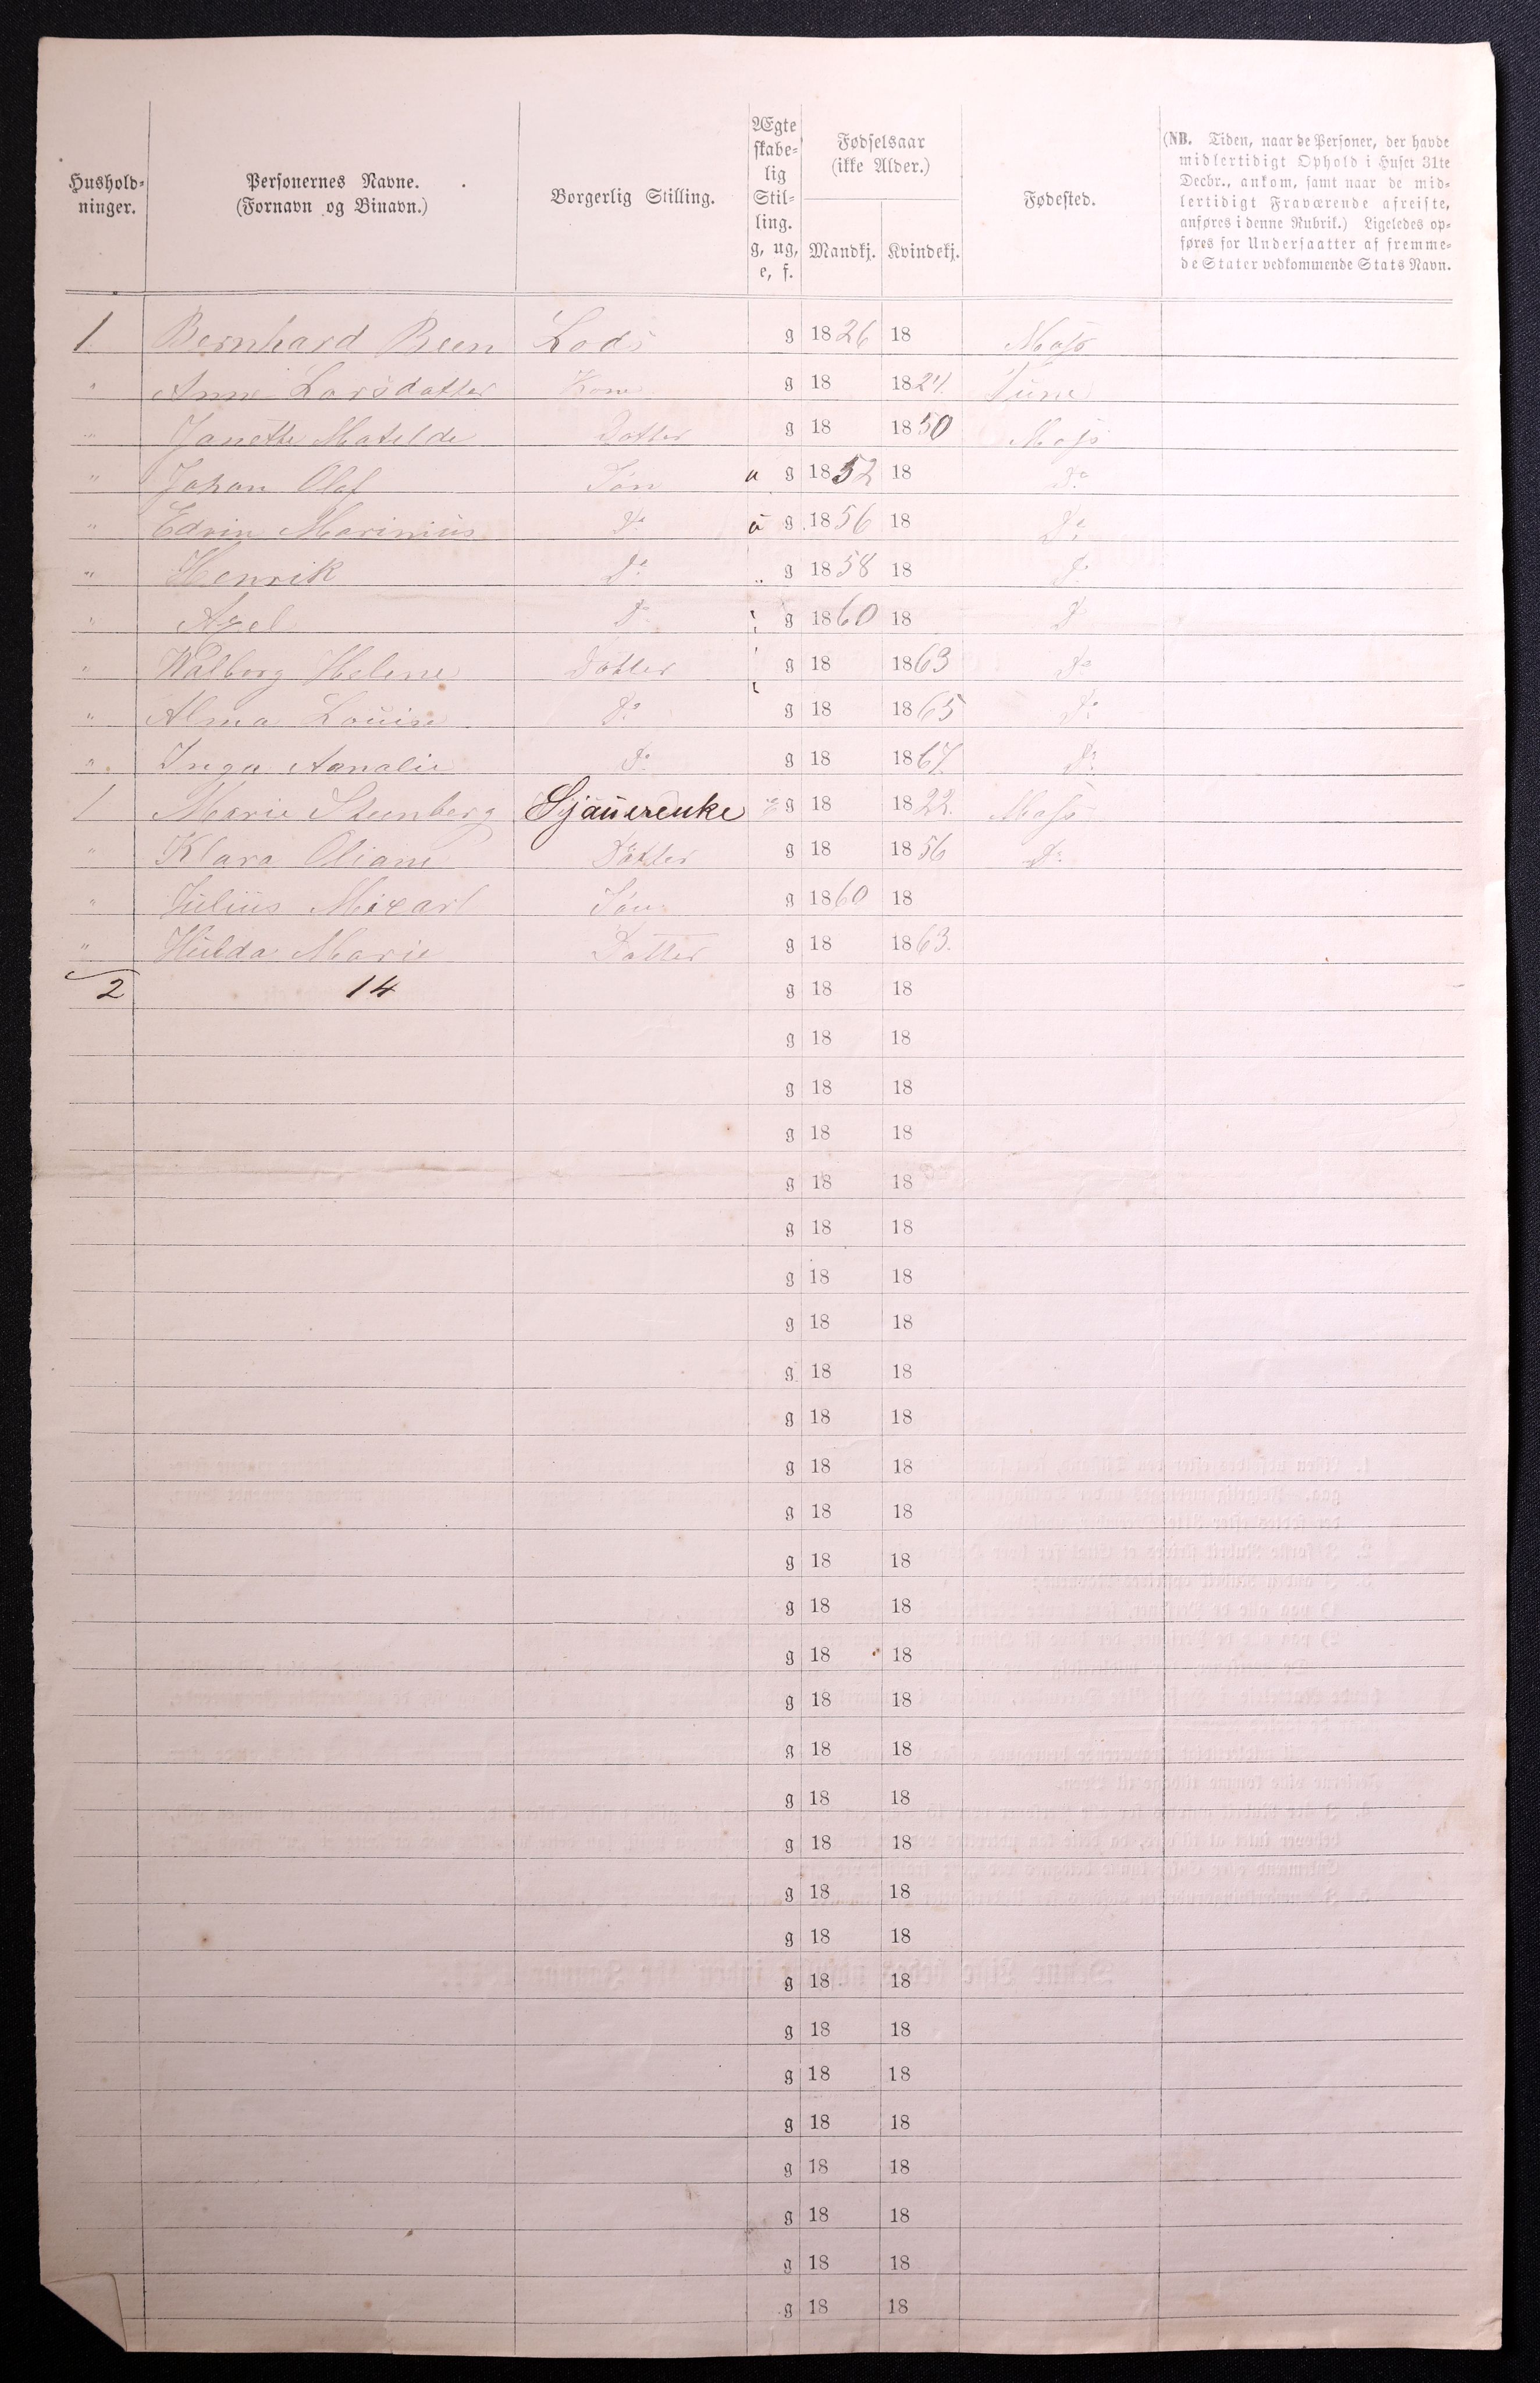 Hushold-
ninger.
Personernes Navne.
(Fornavn og Binavn.)
Borgerlig Stilling.
Ægte
skabe-
lig
Stil-
ling.
g, ug,
e, f.
Fødselsaar
(ikke Alder.)
Mandkj. Kvindekj.
Fødested.
(NB. Tiden, naar de Personer, der havde
midlertidigt Ophold i Huset 31te
Decbr., ankom, samt naar de mid-
lertidigt Fraværende afreiste,
anføres i denne Rubrik.) Ligeledes op-
føres for Undersaatter af fremme-
de Stater vedkommende Stats Navn.
1 Bernhard Been Lods g 1826 18 Moss
" Anne Larsdatter Kone g 18 1824. Tune
" Janette Matilde Datter g 18 1850 Moss
" Johan Olaf Søn u g 1852 18 Do
" Edvin Marinius Do u g 1856 18 Do
" Henrik Do " g 1858 18 Do
" Axel Do " g 1860 18 Do
" Walborg Helene Datter " g 18 1863 Do
" Alma Louise Do g 18 1865 Do
" Inga Amalie Do g 18 1867. Do
1 Marie Steenberg Sjauerenke g 18 1822. Moss
" Klara Oliane Datter g 18 1856 Do
" Julius Søn g 1860 18
" Hulda Marie Datter g 18 1863.
2 14 g 18 18
g 18 18
g 18 18
g 18 18
g 18 18
g 18 18
g 18 18
g 18 18
g 18 18
g 18 18
g 18 18
g 18 18
g 18 18
g 18 18
g 18 18
g 18 18
g 18 18
g 18 18
g 18 18
g 18 18
g 18 18
g 18 18
g 18 18
g 18 18
g 18 18
g 18 18
g 18 18
g 18 18
g 18 18